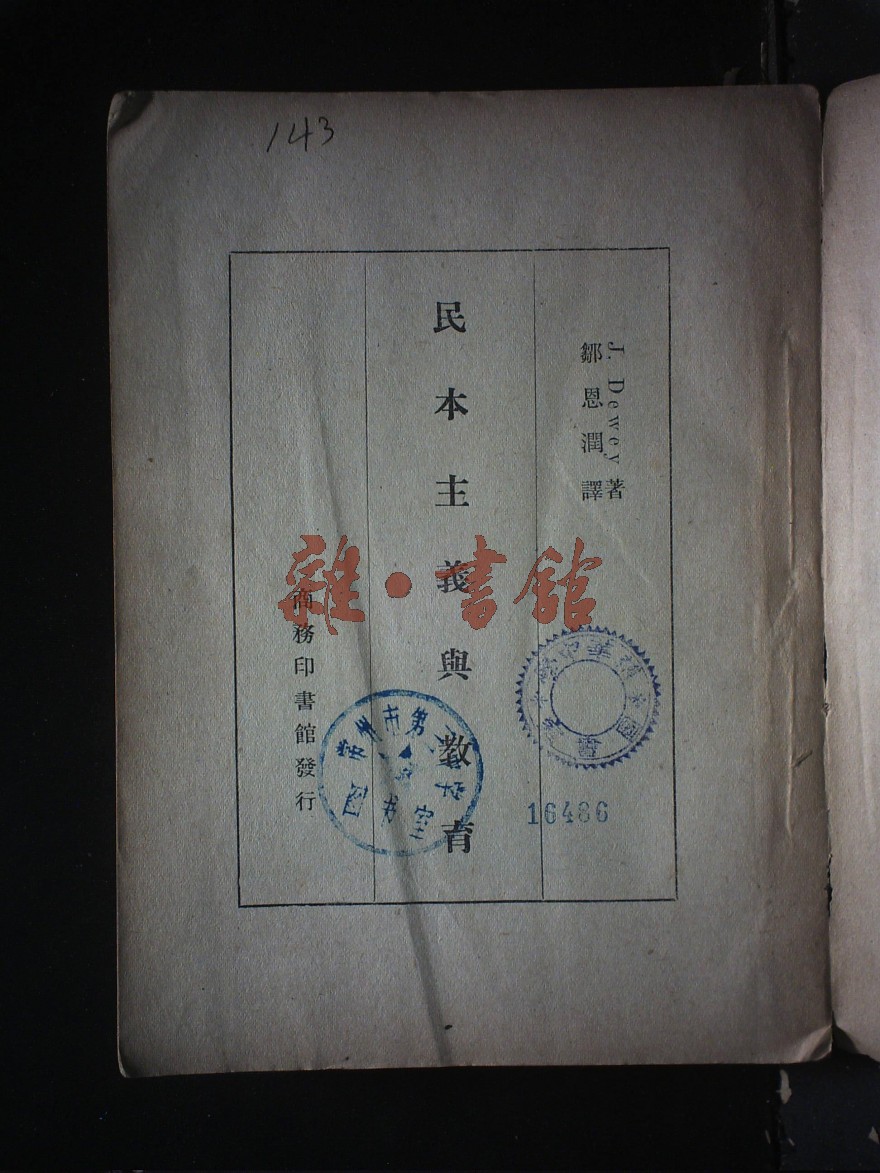 143
J. Dewey 著
鄒恩潤譯
民本主義與教育
商務印書館發行
雜·書館
16486